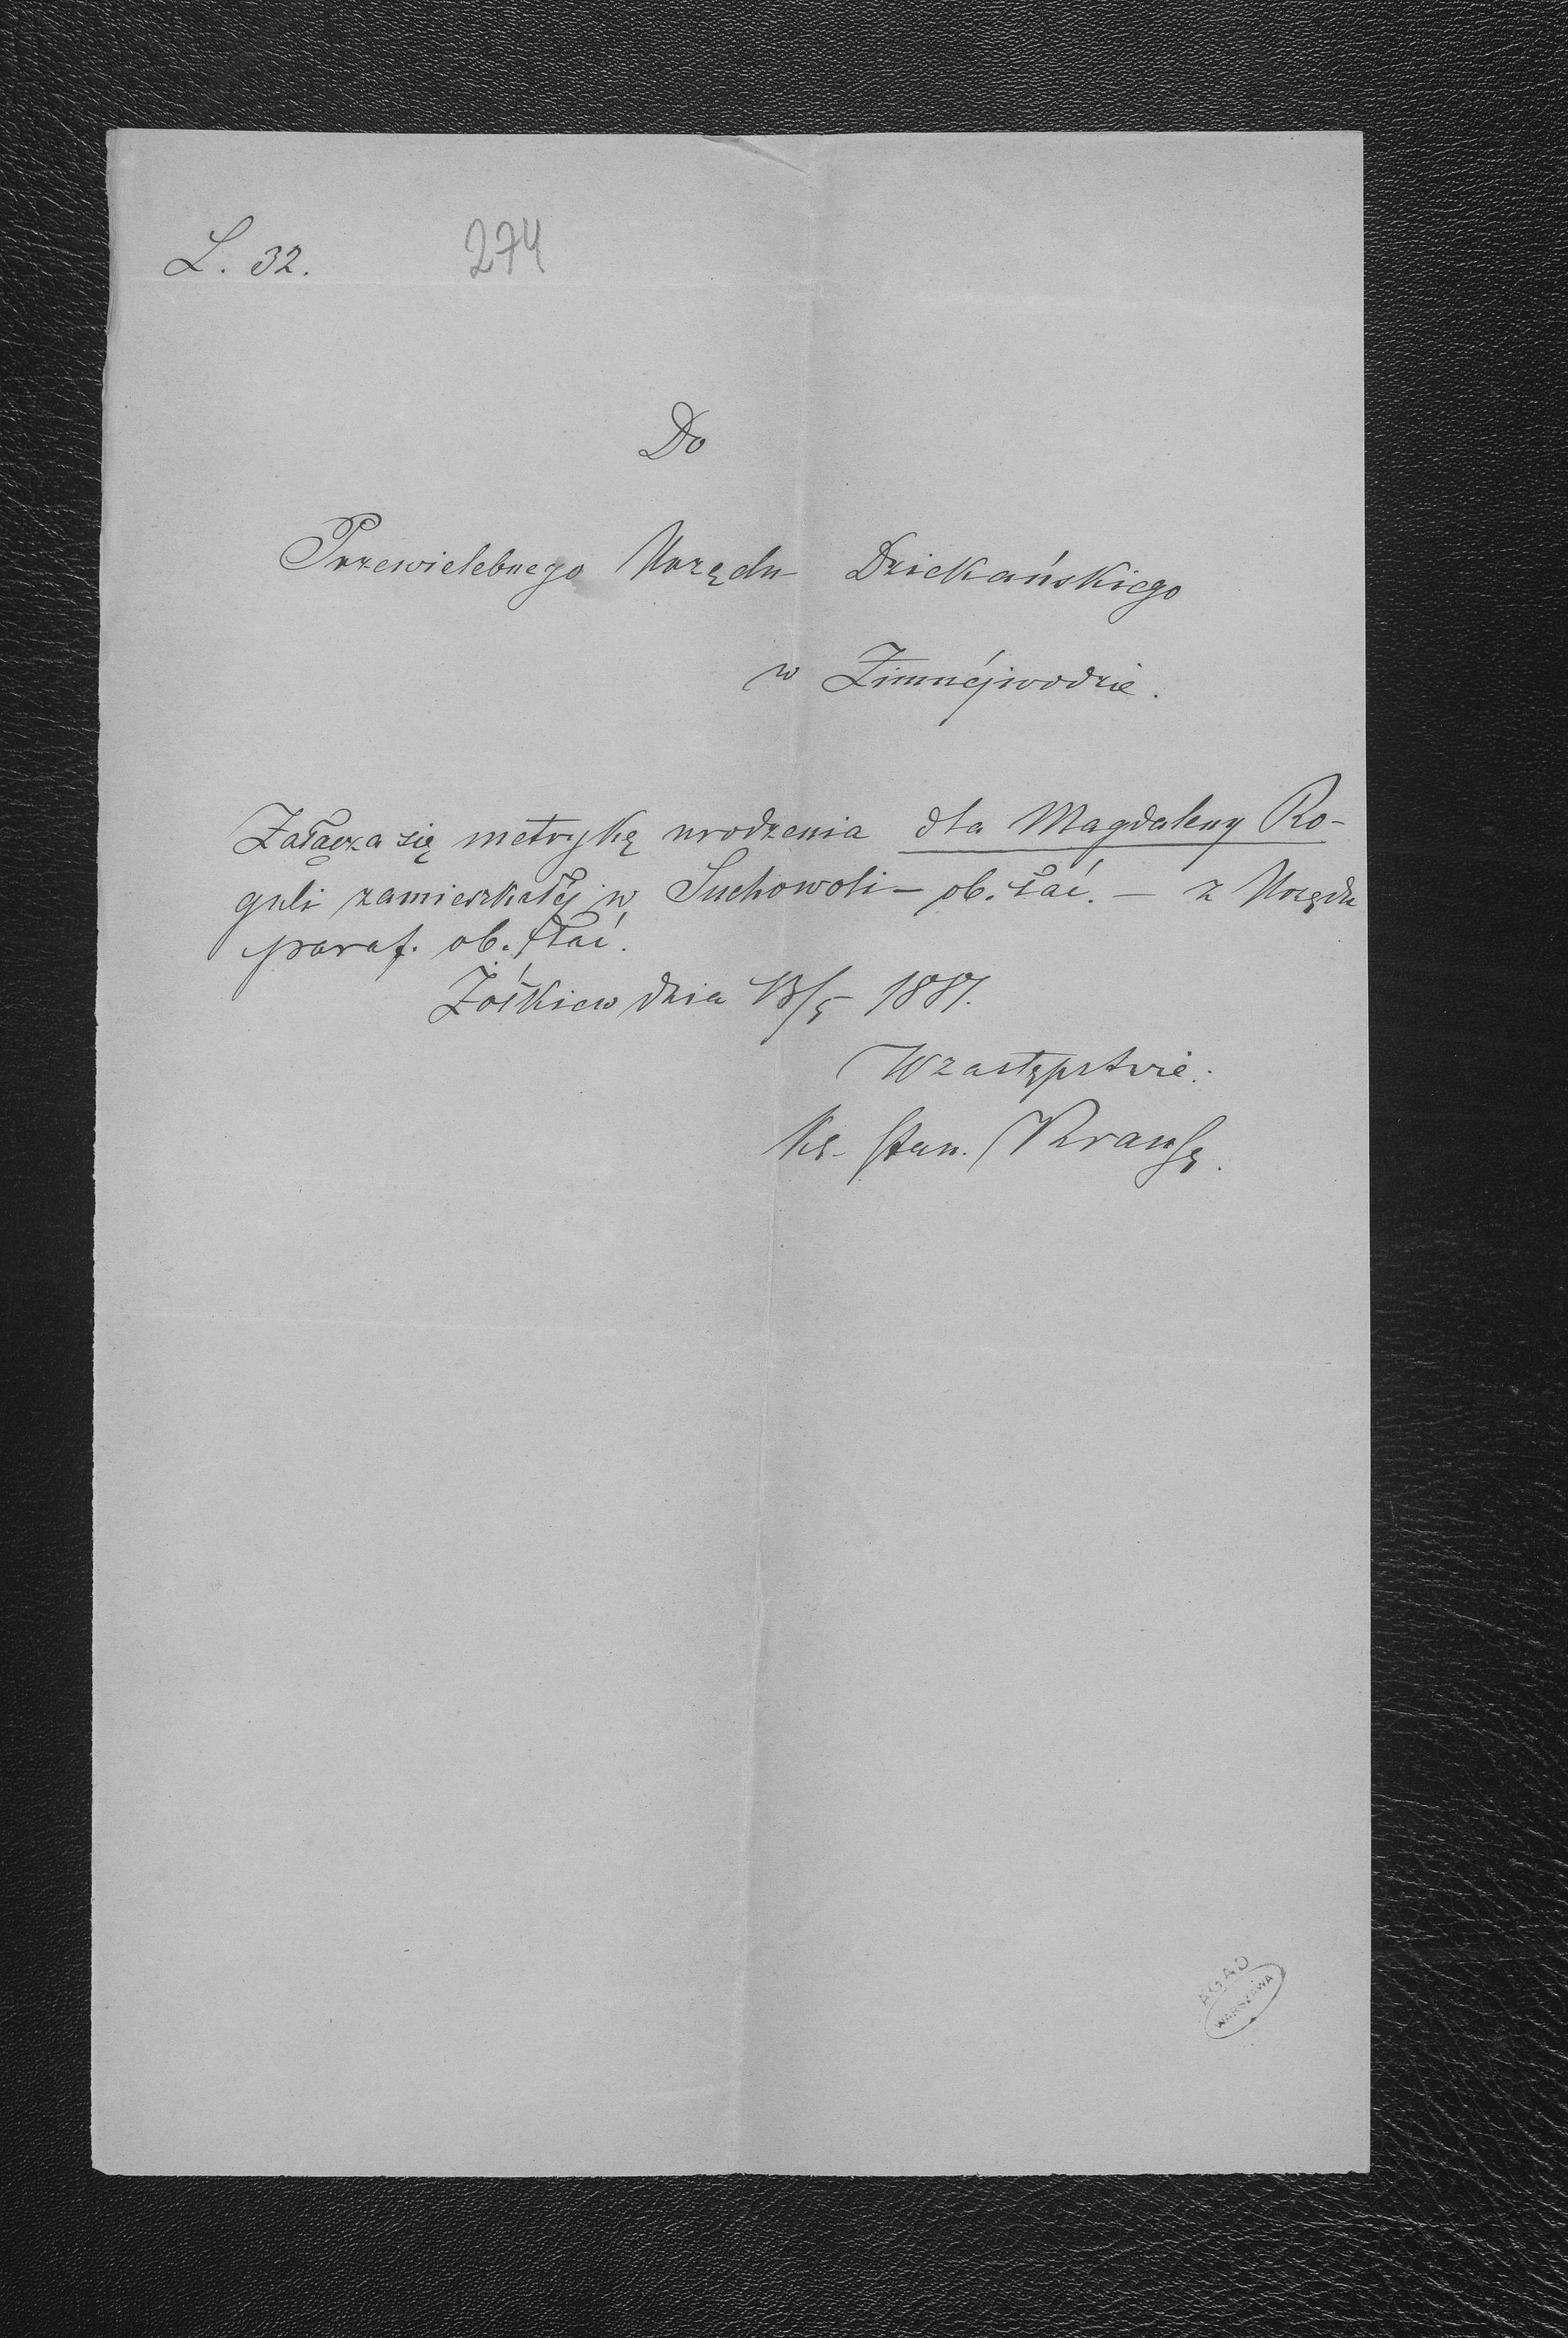 L. 32. 274
Do
Przewielebnego Urzędu Dziekańskiego
w Zimnéjwodzie.
Załącza się metrykę urodzenia dla Magdaleny Ro-
guli zamieszkałéj w Suchowoli – ob. łać. – z Urzędu
paraf. ob. łać.
Żółkiew dnia 13/5 1887.
W zastępstwie:
Ks. Stan.
AGAD
WARSZAWA